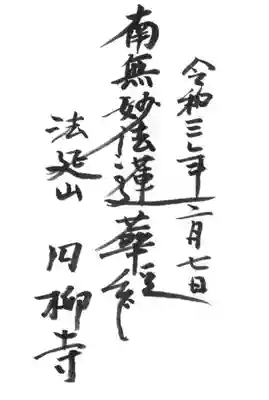 令和三年二月七日
南無妙法蓮華経
法延山
円柳寺